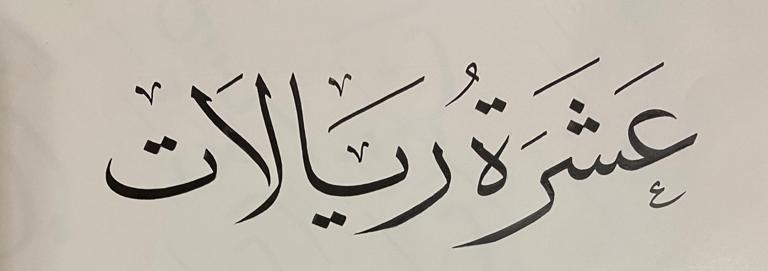 عَشَرَةُ ريَالَات